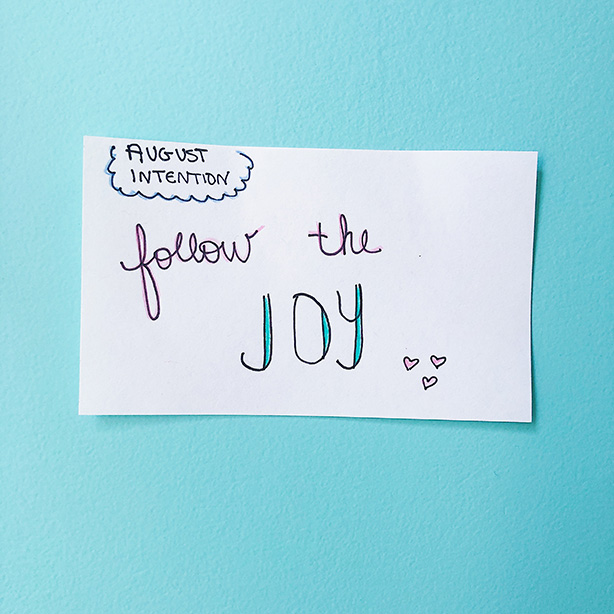 AUGUST
INTENTION
follow the
JOY